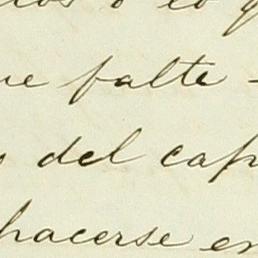 o lo q
ue falte -
del cap
hacerse en